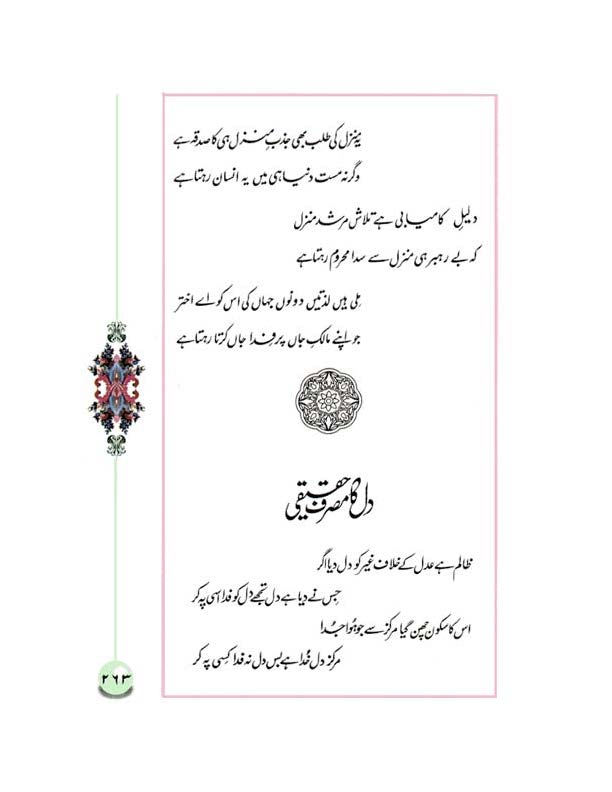 یہ منزل کی طلب بھی جذبِ منزل ہی کا صدقہ ہے
وگرنہ مست دنیا ہی میں یہ انسان رہتا ہے
دلیلِ کامیابی ہے تلاشِ مرشدِ منزل
کہ بے رہبر ہی منزل سے سدا محروم رہتا ہے
مِلی ہیں لذتیں دونوں جہاں کی اس کو اے اختر
جو اپنے مالکِ جاں پر فِدا جاں کرتا رہتا ہے
دل کا مصرفِ حقیقی
ظالم ہے عدل کے خلاف غیر کو دل دیا اگر
جِس نے دیا ہے دل تجھے دل کو فدا اسی پہ کر
اس کا سکون چھن گیا مرکز سے جو ہُوا جُدا
مرکزِ دل خُدا ہے بس دل نہ فدا کِسی پہ کر
۲۶۳